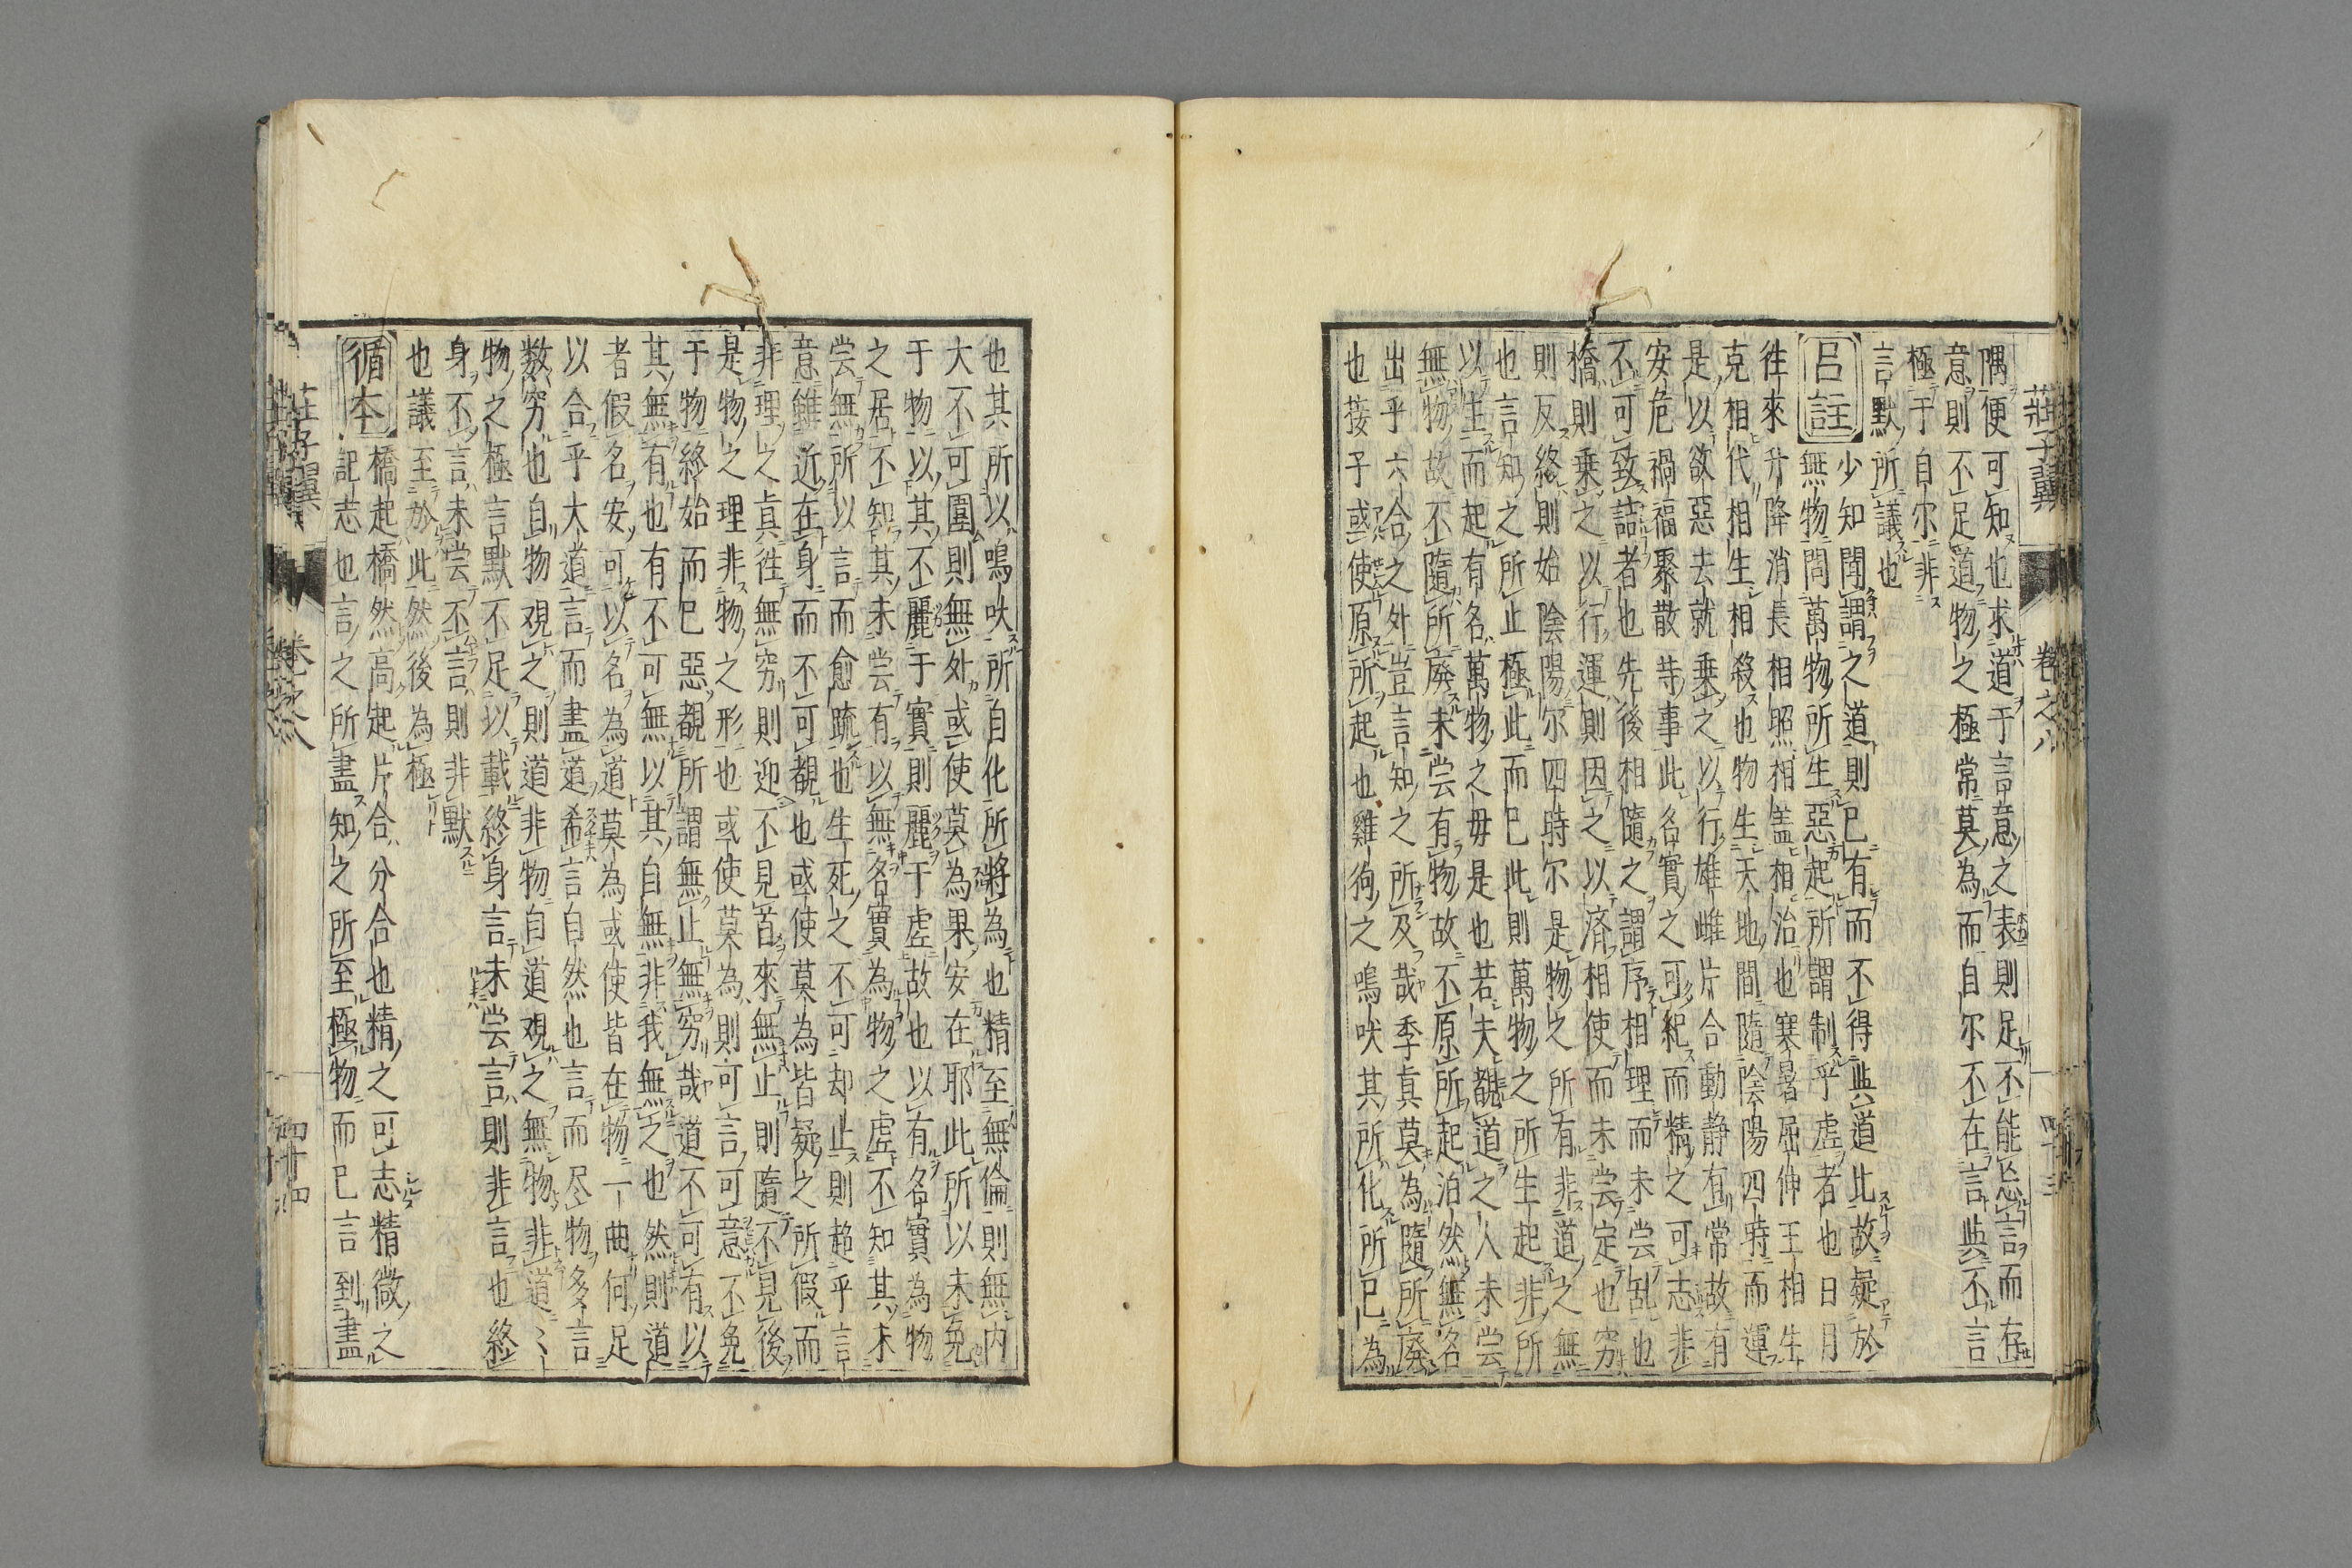 莊子翼 卷之八
隅便可知也求道于言意之表則足不能忘言而存
意則不足道物之極常莫為而自尔不在言與不言
極于自尔非
言默所議也
呂註
少知聞謂之道則已有而不得與道此故疑於
無物問萬物所生惡起所謂制乎虛者也日月
往來升降消長相照相盖相治也寒暑屈伸王相生
克相代相生相殺也物生天地間隨陰陽四時而運
是以欲惡去就乗之以行雄雌片合動静有常故有
安危禍福聚散等事此名實之可紀而精之可志非
不可致詰者也先後相隨之謂序相理而未尝乱也
橋則乗之以行運則因之以済相使而未尝定也穷
則反終則始陰陽尔四時尔是物之所有非道之無
也言知之所止極此而已此則萬物之所生起非所
以生而起有名萬物之毋是也若夫覩道之人未尝
無物故不隨所廢未尝有物故不原所起泊然無名
出乎六合之外豈言知之所及哉季真莫為隨所廢
也接子或使原所起也雞狗之鳴吠其所化所已為
也其所以鳴吠所自化所將為也精至無倫則無内
大不可圍則無外或使莫為果安在耶此所以未免
于物以其不麗于實則麗于虛故也以有名實為物
之居不知其未尝有以無名實為物之虛不知其未
尝無所以言而愈疏也生死之不可却止則趋乎言
意雖近在身而不可覩也或使莫為皆疑之所假而
非理之真往無穷則迎不見首來無止則隨不見後
是物之理非物之形也或使莫為則可言可意不免
于物終始而已惡覩所謂無止無穷哉道不可有以
其無有也有不可無以其自無非我無之也然則道
者假名安可以名為道莫為或使皆在物一曲何足
以合乎大道言而盡道希言自然也言而尽物多言
数穷也自物观之則道非物自道观之無物非道〻
物之極言默不足以載終身言未尝言則非言也終
身不言未尝不言則非默
也議至於此然後為極
循本
橋起橋然高起片合分合也精之可志精微之
可記志也言之所盡知之所至極物而已言到盡
莊子翼 卷之八 四十四